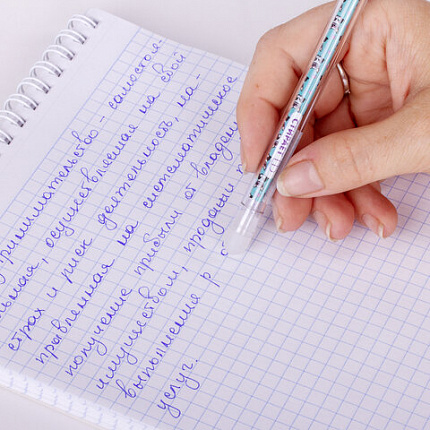 принимательство - самостоя-
ьная, осуществляемая на свой
страх и риск деятельность, на-
правленная на систематическое
получение прибыли от владен
имуществом, продажи
выполнения р
услуг.
СТИРАЕТ